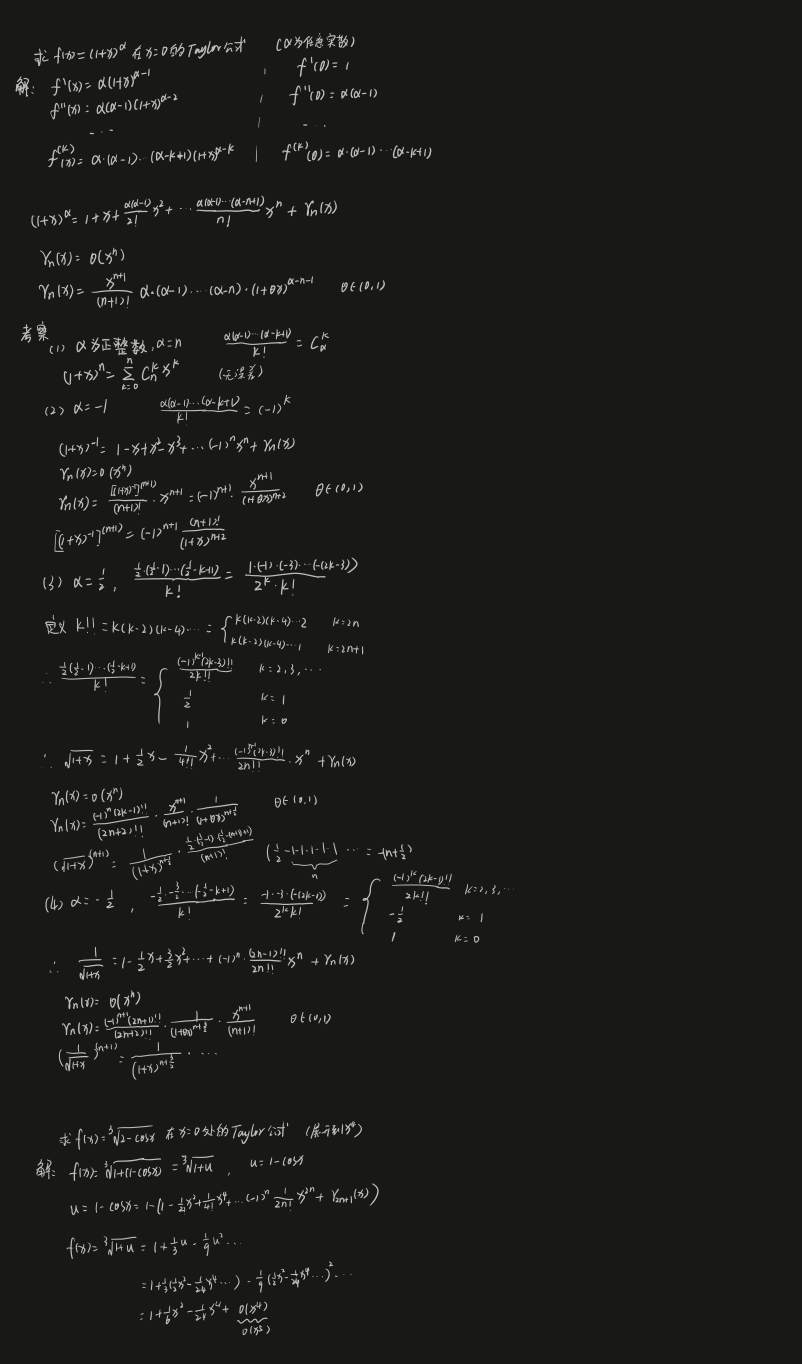 求 f(x) = (1+x)^α 在 x=0 的 Taylor 公式 (α为任意实数)
解: f'(x) = α(1+x)^{α-1} | f'(0) = 1
f''(x) = α(α-1)(1+x)^{α-2} | f''(0) = α(α-1)
... | ...
f^{(k)}(x) = α·(α-1)...(α-k+1)(1+x)^{α-k} | f^{(k)}(0) = α·(α-1)...(α-k+1)
(1+x)^α = 1+x+\frac{α(α-1)}{2!}x^2+...\frac{α(α-1)...(α-n+1)}{n!}x^n + r_n(x)
r_n(x) = o(x^n)
r_n(x) = \frac{x^{n+1}}{(n+1)!} α·(α-1)....(α-n)·(1+θx)^{α-n-1} θ∈(0,1)
考察
(1) α为正整数, α=n \frac{α(α-1)...(α-k+1)}{k!} = C_α^k
(1+x)^n = \sum_{k=0}^{n} C_n^k x^k (无误差)
(2) α=-1 \frac{α(α-1)...(α-k+1)}{k!} = (-1)^k
(1+x)^{-1} = 1-x+x^2-x^3+...(-1)^n x^n + r_n(x)
r_n(x) = o(x^n)
r_n(x) = \frac{[(1+x)^{-1}]^{(n+1)}}{(n+1)!}·x^{n+1} = (-1)^{n+1}·\frac{x^{n+1}}{(1+θx)^{n+2}} θ∈(0,1)
[(1+x)^{-1}]^{(n+1)} = (-1)^{n+1} \frac{(n+1)!}{(1+x)^{n+2}}
(3) α=\frac{1}{2}, \frac{\frac{1}{2}·(\frac{1}{2}-1)...(\frac{1}{2}-k+1)}{k!} = \frac{1·(-1)·(-3)...(-(2k-3))}{2^k·k!}
定义 k!! = k(k-2)(k-4)... = { k(k-2)(k-4)...2 k=2n
k(k-2)(k-4)...1 k=2n+1
∴ \frac{\frac{1}{2}(\frac{1}{2}-1)...(\frac{1}{2}-k+1)}{k!} = { \frac{(-1)^{k-1}(2k-3)!!}{2k!!} k=2,3,...
\frac{1}{2} k=1
1 k=0
∴ \sqrt{1+x} = 1+\frac{1}{2}x-\frac{1}{4!!}x^2+...\frac{(-1)^{n-1}(2k-3)!!}{2n!!}·x^n + r_n(x)
r_n(x) = o(x^n)
r_n(x) = \frac{(-1)^n(2k-1)!!}{(2n+2)!!}·\frac{x^{n+1}}{(n+1)!}·\frac{1}{(1+θx)^{n+\frac{1}{2}}} θ∈(0,1)
(\sqrt{1+x})^{(n+1)} = \frac{1}{(1+x)^{n+\frac{1}{2}}}·\frac{\frac{1}{2}·(\frac{1}{2}-1)·(\frac{1}{2}-(n+1)+1)}{(n+1)!} (\frac{1}{2}-1-1-1-1-1 ... = -(n+\frac{1}{2})
n
(4) α=-\frac{1}{2}, \frac{-\frac{1}{2}·-\frac{3}{2}...(-\frac{1}{2}-k+1)}{k!} = \frac{-1·-3·(-(2k-1))}{2^k k!} = { \frac{(-1)^k(2k-1)!!}{2k!!} k=2,3,...
-\frac{1}{2} k=1
1 k=0
∴ \frac{1}{\sqrt{1+x}} = 1-\frac{1}{2}x+\frac{3}{2}x^2+...+(-1)^n·\frac{(2n-1)!!}{2n!!}x^n + r_n(x)
r_n(x) = o(x^n)
r_n(x) = \frac{(-1)^{n+1}(2n+1)!!}{(2n+2)!!}·\frac{1}{(1+θx)^{n+\frac{3}{2}}}·\frac{x^{n+1}}{(n+1)!} θ∈(0,1)
(\frac{1}{\sqrt{1+x}})^{(n+1)} = \frac{1}{(1+x)^{n+\frac{3}{2}}}·...
求 f(x) = \sqrt[3]{2-cosx} 在 x=0 处的 Taylor 公式 (展示到x^4)
解: f(x) = \sqrt[3]{1+(1-cosx)} = \sqrt[3]{1+u}, u=1-cosx
u = 1-cosx = 1-(1-\frac{1}{2!}x^2+\frac{1}{4!}x^4+...(-1)^n \frac{1}{2n!}x^{2n}+r_{2n+1}(x))
f(x) = \sqrt[3]{1+u} = 1+\frac{1}{3}u-\frac{1}{9}u^2...
= 1+\frac{1}{3}(\frac{1}{2}x^2-\frac{1}{24}x^4...)-\frac{1}{9}(\frac{1}{2}x^2-\frac{1}{24}x^4...)^2...
= 1+\frac{1}{6}x^2-\frac{1}{24}x^4+o(x^4)
o(x^5)